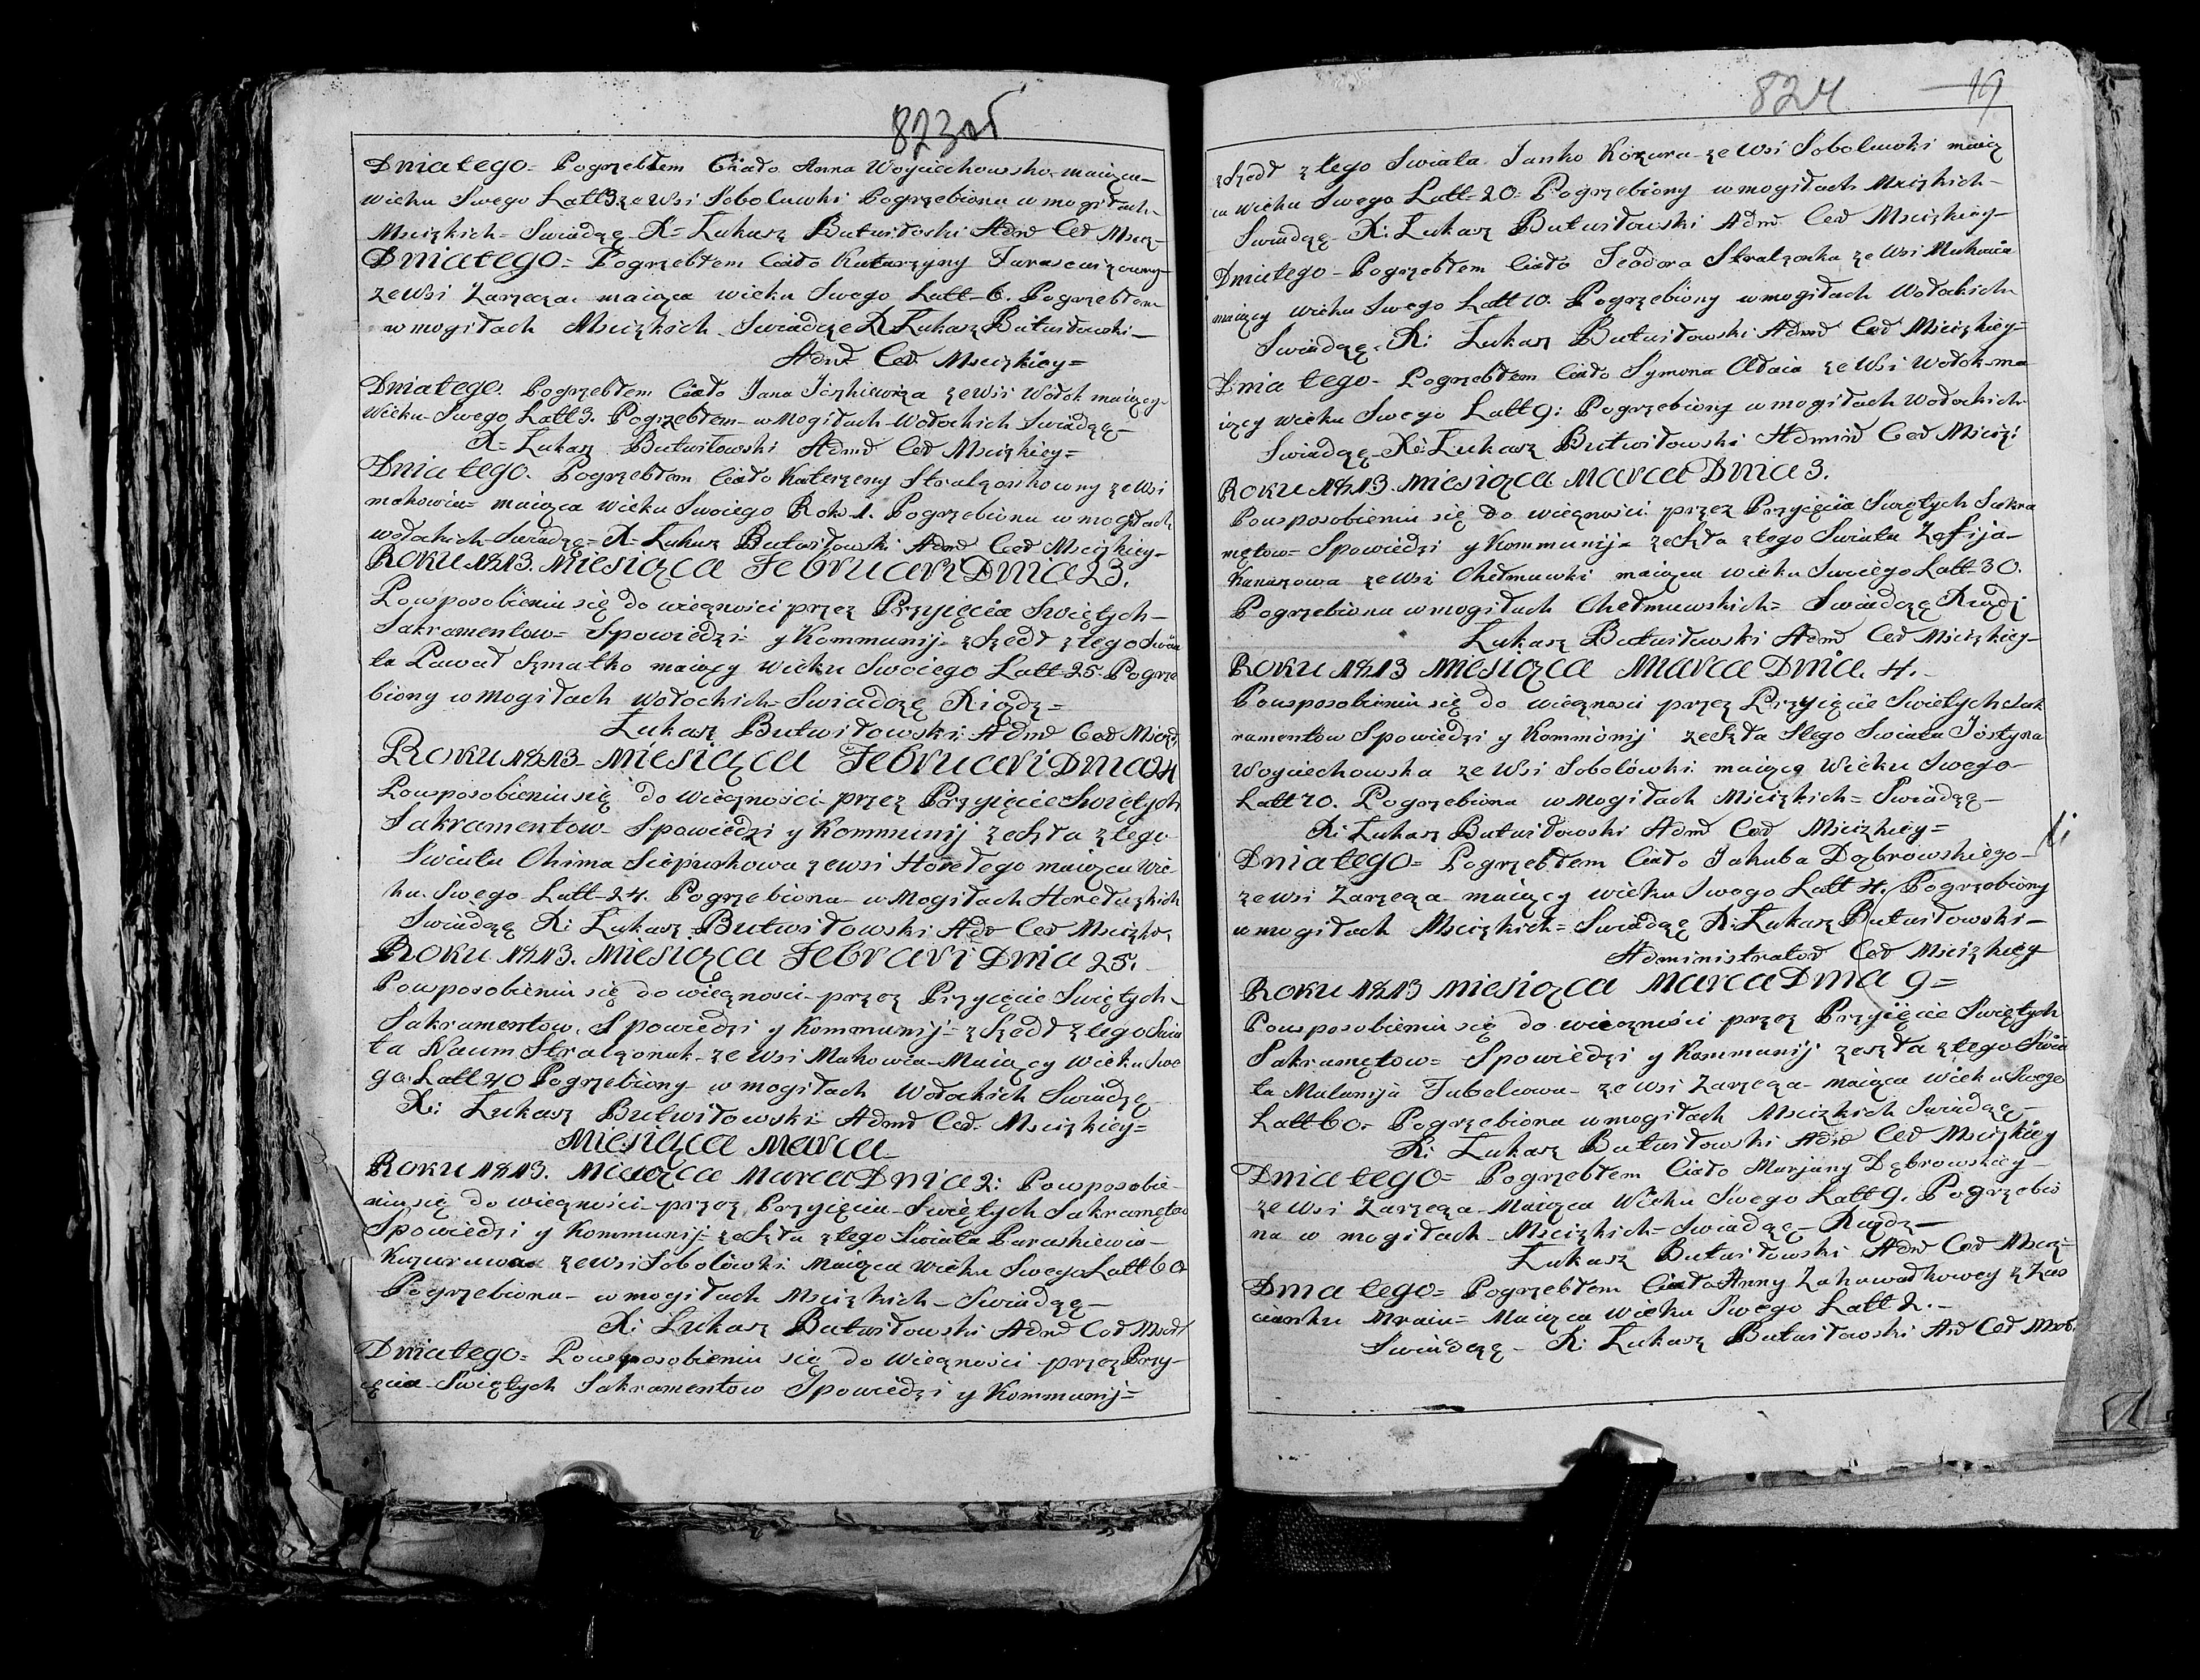 823об
Dnia tego= Pogrzebłem Ciało Anna Woyciechowsko maiąca-
wieku Swego Latt 3 ze Wsi Soboluwki Pogrzebiona w mogiłach-
Mscizkich= Swiadczę X= Łukasz Butwiłowski Admr Cer Mscz-
Dnia tego= Pogrzebłem Ciało Katarzyny
ze Wsi Zarzecza maiąca wieku Swego Latt- 6. Pogrzebłem
w mogiłach Mscizkich Swiadczę X Łukasz Butwiłowski-
Admr Cer Mscizkiey=
Dnia tego. Pogrzebłem Ciało Jana ze Wsi Wołok maiący-
Wieku Swego Latt 3. Pogrzebłem w Mogiłach Wołockich Swiadczę-
X= Łukasz Butwiłowski Admr Cer Mscizkiey=
Dnia tego. Pogrzebłem Ciało Katerzeny Stralczonkowny ze Wsi
mokowia= maiąca Wieku Swoiego Rok 1. Pogrzebiona w mogiłach
wołockich Swiadczę= X= Łukasz Butwiłowski Admr Cer Mscizkiey-
Roku 1813. Miesiąca Februari Dnia 23.
Pousposobieniu się do wieczności przez Przyięcia Swiętych-
Sakramentow= Spowiedzi y Kommunij- zszedł z tego Swia
ta Paweł Szmatko maiący Wieku Swoiego Latt- 25. Pogrze
biony w Mogiłach Wołockich= Swiadczę Xiądz=
Łukasz Butwiłowski Admr Cer Mscz
Roku 1813- Miesiąca Februari Dnia 24
Pousposobieniu się do Wieczności- przez Przyięcie Swiętych
Sakramentow- Spowiedzi y Kommunij zeszła z tego
Swiata Chima ze wsi maiąca Wie-
ku Swego Latt- 24. Pogrzebiona- w Mogiłach
Swiadczę X: Łukasz Butwiłowski Adr Cer Mscizk.
Roku 1813. Miesiąca Februari Dnia 25.
Pousposobieniu się do wieczności- przez Przyięcie Swiętych-
Sakramentow. Spowiedzi y Kommunij= zszedł z tego Swia
ta Naum Stralczonak- ze Wsi Makowia- Maiący Wieku Swe
go Latt 40 Pogrzebiony- w mogiłach Wołockich Swiadczę
X: Łukasz Butwiłowski Admr Cer. Mscizkiey=
Miesiąca Marca
Roku 1813. Miesiąca Marca Dnia 2: Pousposobie-
niu się do wieczności- przez Przyięcia Swiętych Sakramętow
Spowiedzi y Kommunij- zeszła z tego Swiata Paraskiewia-
ze Wsi Sobolówki Maiąca wieku Swego Latt 60
Pogrzebiona- w mogiłach Mscizkich- Swiadczę-
X: Łukasz Butwiłowski Admr Cer
Dnia tego= Pousposobieniu się do Wieczności przez Przy-
ęcia Swiętych Sakramentow Spowiedzi y Kommunij=
824
19
zszedł z tego Swiata Janko Kozura- ze Wsi Soboluwki maiąc
Wieku Swego Latt- 20= Pogrzebiony w mogiłach Mscizkich-
Swiadczę- X: Łukasz Butwiłowski Admr Cer Mscizkiey-
Dnia tego- Pogrzebłem Ciało Teodora Stralczonka ze Wsi
maiący wieku Swego Latt 10. Pogrzebiony w mogiłach Wołockich
Swiadczę. X: Łukasz Butwiłowski Admr Cer Mscizkiey=
Dnia tego- Pogrzebłem Ciało Symona ze Wsi Wołok ma
iący wieku Swego Latt 9: Pogrzebiony w mogiłach Wołockich
Swiadczę- X: Łukasz Butwiłowski Admin Cer Msciz:
Roku 1813 Miesiąca Marca Dnia 3.
Pousposobieniu się Do wieczności przez Przyięcia Swiętych Sakra
mętow= Spowiedzi y Kommunij= zeszła z tego Swiata Zofija-
ze Wsi maiąca wieku Swoiego Latt- 30.
Pogrzebiona w mogiłach Swiadczę Xiądz
Łukasz Butwiłowski Admr Cer Mscizkiey-
Roku 1813 Miesiąca Marca Dnia 4.-
Pousposobieniu się do wieczności przez Przyięcie Swiętych Sak
ramentow Spowiedzi y Kommonij zeszła Stego Swiata Jóstyna
Woyciechowska ze Wsi Sobolówki maiącą Wieku Swego-
Latt 70. Pogrzebiona w Mogiłach Mscizkich= Swiadczę-
X: Łukasz Butwiłowski Admr Cer Mscizkiey=
Dnia tego= Pogrzebłem Ciało Jakuba Dąbrowskiego-
ze Wsi Zarzecza maiący wieku Swego Latt 4. Pogrzebiony
w mogiłach Mscizkich= Swiadczę X: Łukasz Butwiłowski-
Administrator Cer Mscizkiey
Roku 1813 Miesiąca Marca Dnia 9=
Pousposobieniu się do wieczności przez Przyięcie Swiętych
Sakramętow= Spowiedzi y Kommunij zeszła z tego Swia
ta Malanija ze Wsi Zarzecza- maiąca Wieku Swego
Latt 60= Pogrzebiona w mogiłach Mscizkich Swiadczę-
X: Łukasz Butwiłowski Admr Cer Mscizkiey
Dnia tego= Pogrzebłem Ciało Marjany Dąbrowskiey-
ze Wsi Zarzecza- Maiąca Wieku Swego Latt 9. Pogrzebio
na w mogiłach Mscizkich= Swiadczę- Xiądz-
Łukasz Butwiłowski Admr Cer Mscz=
Dnia tego= Pogrzebłem Ciało Anny z Zas
cianku Maiąca Wieku Swego Latt 2.-
Swiadczę- X: Łukasz Butwiłowski Ad Cer